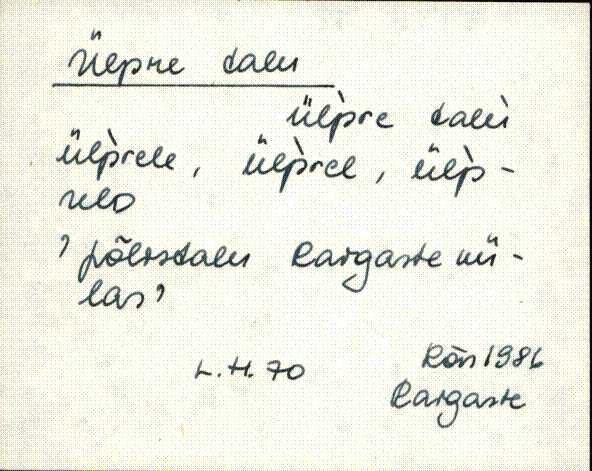 Ülpre talu
ülp̀re talù
ülp̀rele, ülp̀rel, ülp̀-
relo
'põlistalu Kargaste kü-
las'
L.H. 70 Rõn 1986
Kargaste